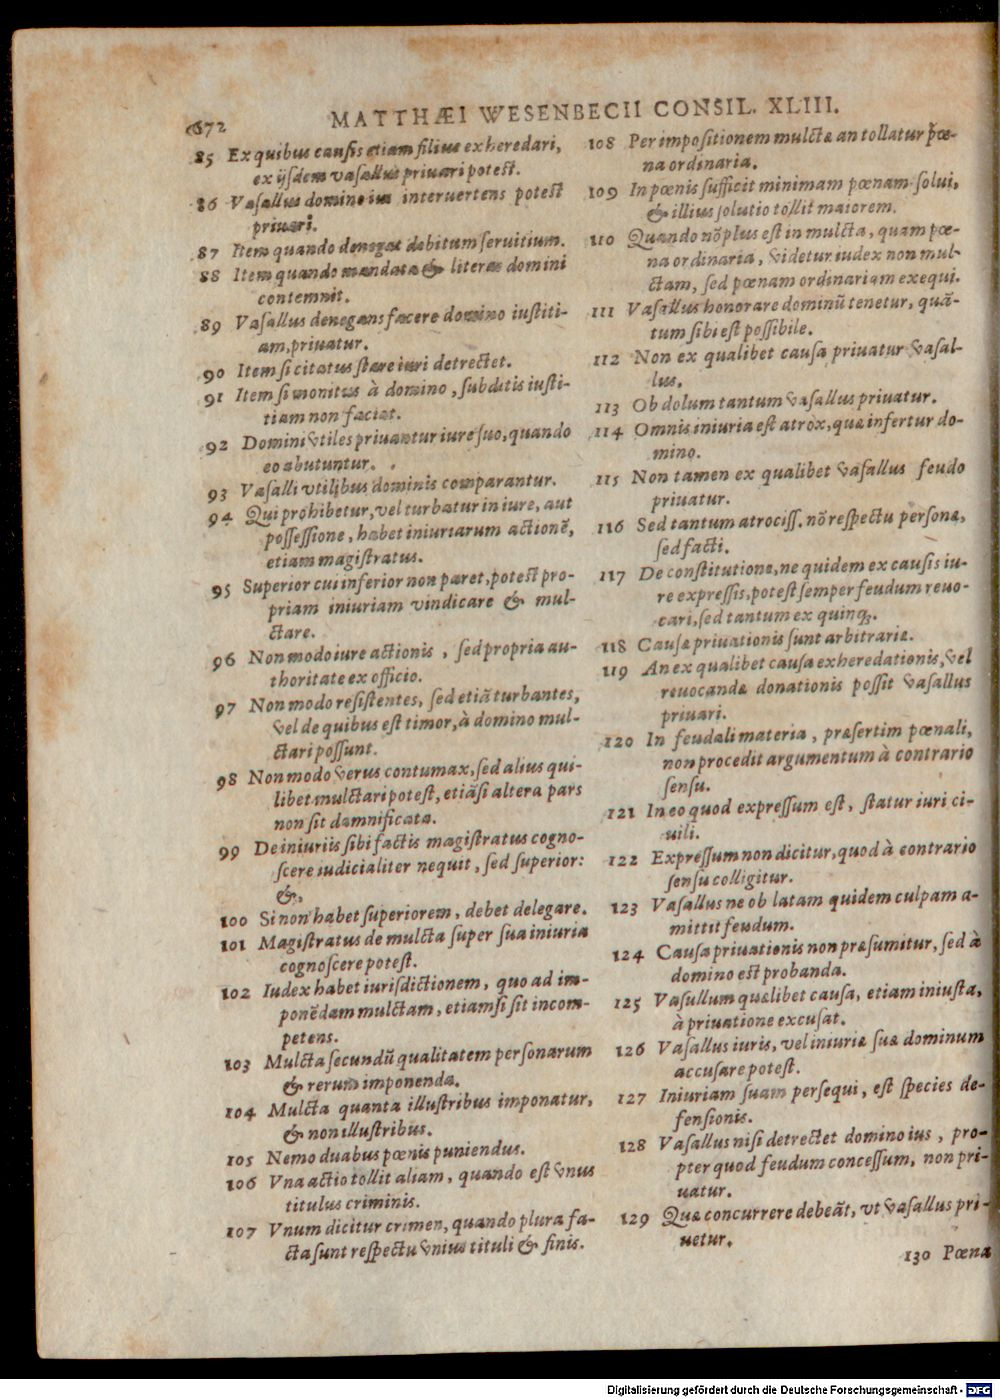 672
MATTHÆI WESENBECII CONSIL. XLIII.
85 Ex quibus causis etiam filius exheredari,
ex ijsdem vasallus priuari potest.
86 Vasallus domino ius interuertens potest
priuari.
87 Item quando denegat debitum seruitium.
88 Item quando mandata & literas domini
contemnit.
89 Vasallus denegans facere domino iustiti-
am, priuatur.
90 Item si citatus stare iuri detrectet.
91 Item si monitus à domino, subditis iusti-
tiam non faciat.
92 Domini vtiles priuantur iure suo, quando
eo abutuntur.
93 Vasalli vtilibus dominis comparantur.
94 Qui prohibetur, vel turbatur in iure, aut
possessione, habet iniuriarum actionẽ,
etiam magistratus.
95 Superior cui inferior non paret, potest pro-
priam iniuriam vindicare & mul-
ctare.
96 Non modo iure actionis, sed propria au-
thoritate ex officio.
97 Non modo resistentes, sed etiã turbantes,
vel de quibus est timor, à domino mul-
ctari possunt.
98 Non modo verus contumax, sed alius qui-
libet mulctari potest, etiãsi altera pars
non sit damnificata.
99 De iniuriis sibi factis magistratus cogno-
scere iudicialiter nequit, sed superior:
&,
100 Si non habet superiorem, debet delegare.
101 Magistratus de mulcta super sua iniuria
cognoscere potest.
102 Iudex habet iurisdictionem, quo ad im-
ponẽdam mulctam, etiamsi sit incom-
petens.
103 Mulcta secundũ qualitatem personarum
& rerum imponenda.
104 Mulcta quanta illustribus imponatur,
& non illustribus.
105 Nemo duabus pœnis puniendus.
106 Vna actio tollit aliam, quando est vnus
titulus criminis.
107 Vnum dicitur crimen, quando plura fa-
cta sunt respectu vnius tituli & finis.
108 Per impositionem mulctæ an tollatur pœ-
na ordinaria.
109 In pœnis sufficit minimam pœnam solui,
& illius solutio tollit maiorem.
110 Quando nõ plus est in mulcta, quam pœ-
na ordinaria, videtur iudex non mul-
ctam, sed pœnam ordinariam exequi.
111 Vasallus honorare dominũ tenetur, quã-
tum sibi est possibile.
112 Non ex qualibet causa priuatur vasal-
lus.
113 Ob dolum tantum vasallus priuatur.
114 Omnis iniuria est atrox, quæ infertur do-
mino.
115 Non tamen ex qualibet vasallus feudo
priuatur.
116 Sed tantum atrociss. nõ respectu personæ,
sed facti.
117 De constitutione, ne quidem ex causis iu-
re expressis, potest semper feudum reuo-
cari, sed tantum ex quinq;.
118 Causæ priuationis sunt arbitrariæ.
119 An ex qualibet causa exheredationis, vel
reuocandæ donationis possit vasallus
priuari.
120 In feudali materia, præsertim pœnali,
non procedit argumentum à contrario
sensu.
121 In eo quod expressum est, statur iuri ci-
uili.
122 Expressum non dicitur, quod à contrario
sensu colligitur.
123 Vasallus ne ob latam quidem culpam a-
mittit feudum.
124 Causa priuationis non præsumitur, sed à
domino est probanda.
125 Vasullum quælibet causa, etiam iniusta,
à priuatione excusat.
126 Vasallus iuris, vel iniuriæ suæ dominum
accusare potest.
127 Iniuriam suam persequi, est species de-
fensionis.
128 Vasallus nisi detrectet domino ius, pro-
pter quod feudum concessum, non pri-
uatur.
129 Quæ concurrere debeãt, vt vasallus pri-
uetur.
130 Pœna
Digitalisierung gefördert durch die Deutsche Forschungsgemeinschaft - DFG